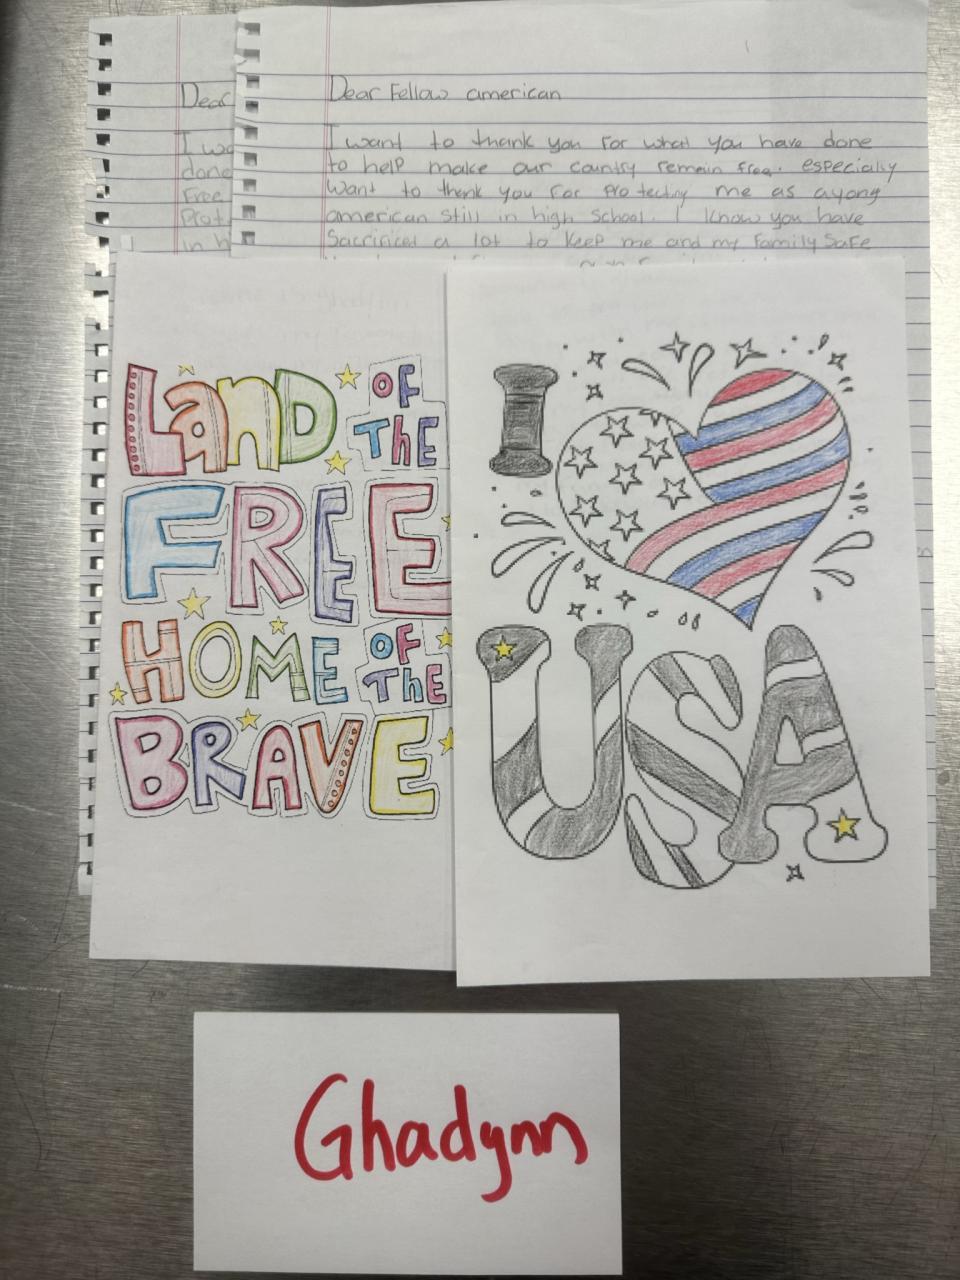 Dear
I wa
done
Free
Prot
in h
Dear Fellow american
I want to thank you for what you have done
to help make our country remain free. especially
want to thank you for protecting me as a yong
american still in high school. I know you have
Sacrificed a lot to keep me and my family safe
LanD OF
ThE
FREE
HOME OF
ThE
BRAVE
I
USA
Ghadynn